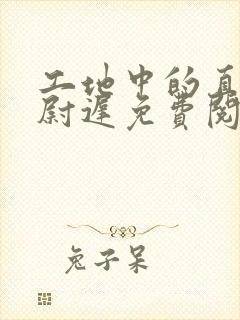 工地中的直
尉遲免費閱
兔子呆